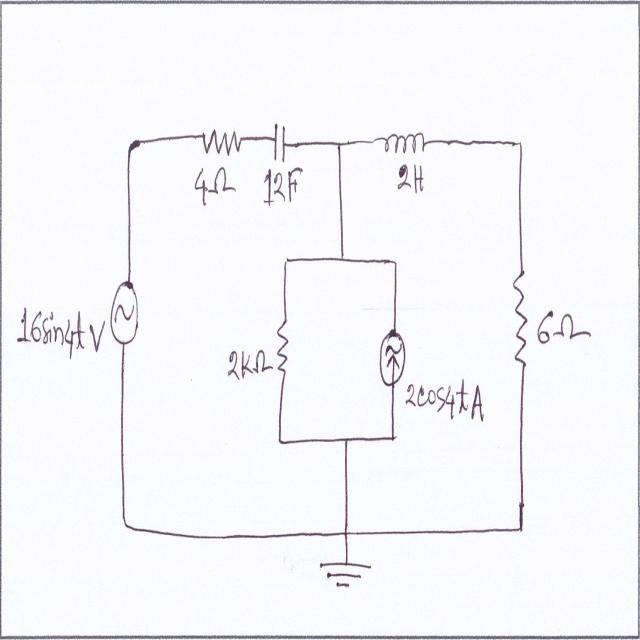 4Ω
12F
2H
16sin4t V
2KΩ
2cos4t A
6Ω